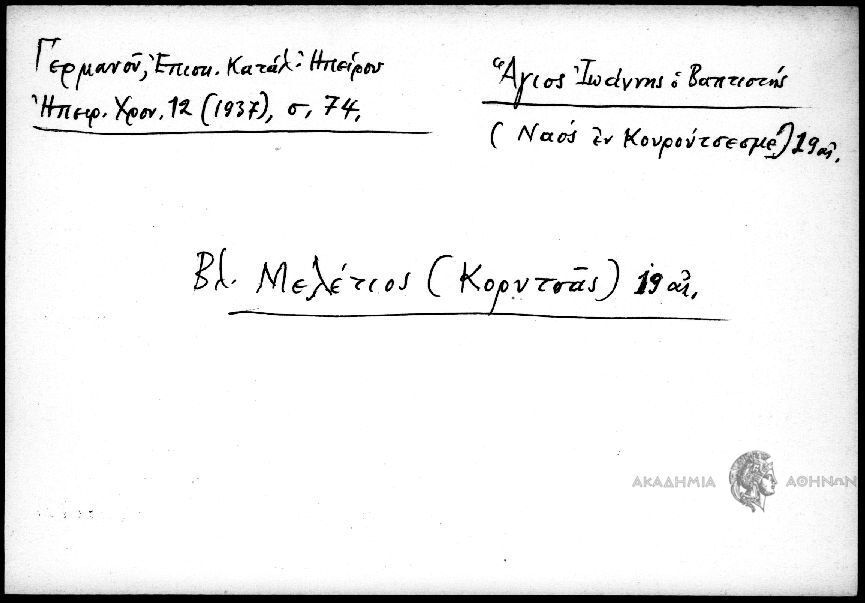 Γερμανοῦ, Ἐπισκ. Κατάλ. Ἠπείρου
Ἠπειρ. Χρον. 12 (1937), σ. 74.
Ἅγιος Ἰωάννης ὁ Βαπτιστής
(Ναός ἐν Κουρούτσεσμέ) 19 αἰ.
Βλ. Μελέτιος (Κορυτσᾶς) 19 αἰ.
ΑΚΑΔΗΜΙΑ ΑΘΗΝΩΝ